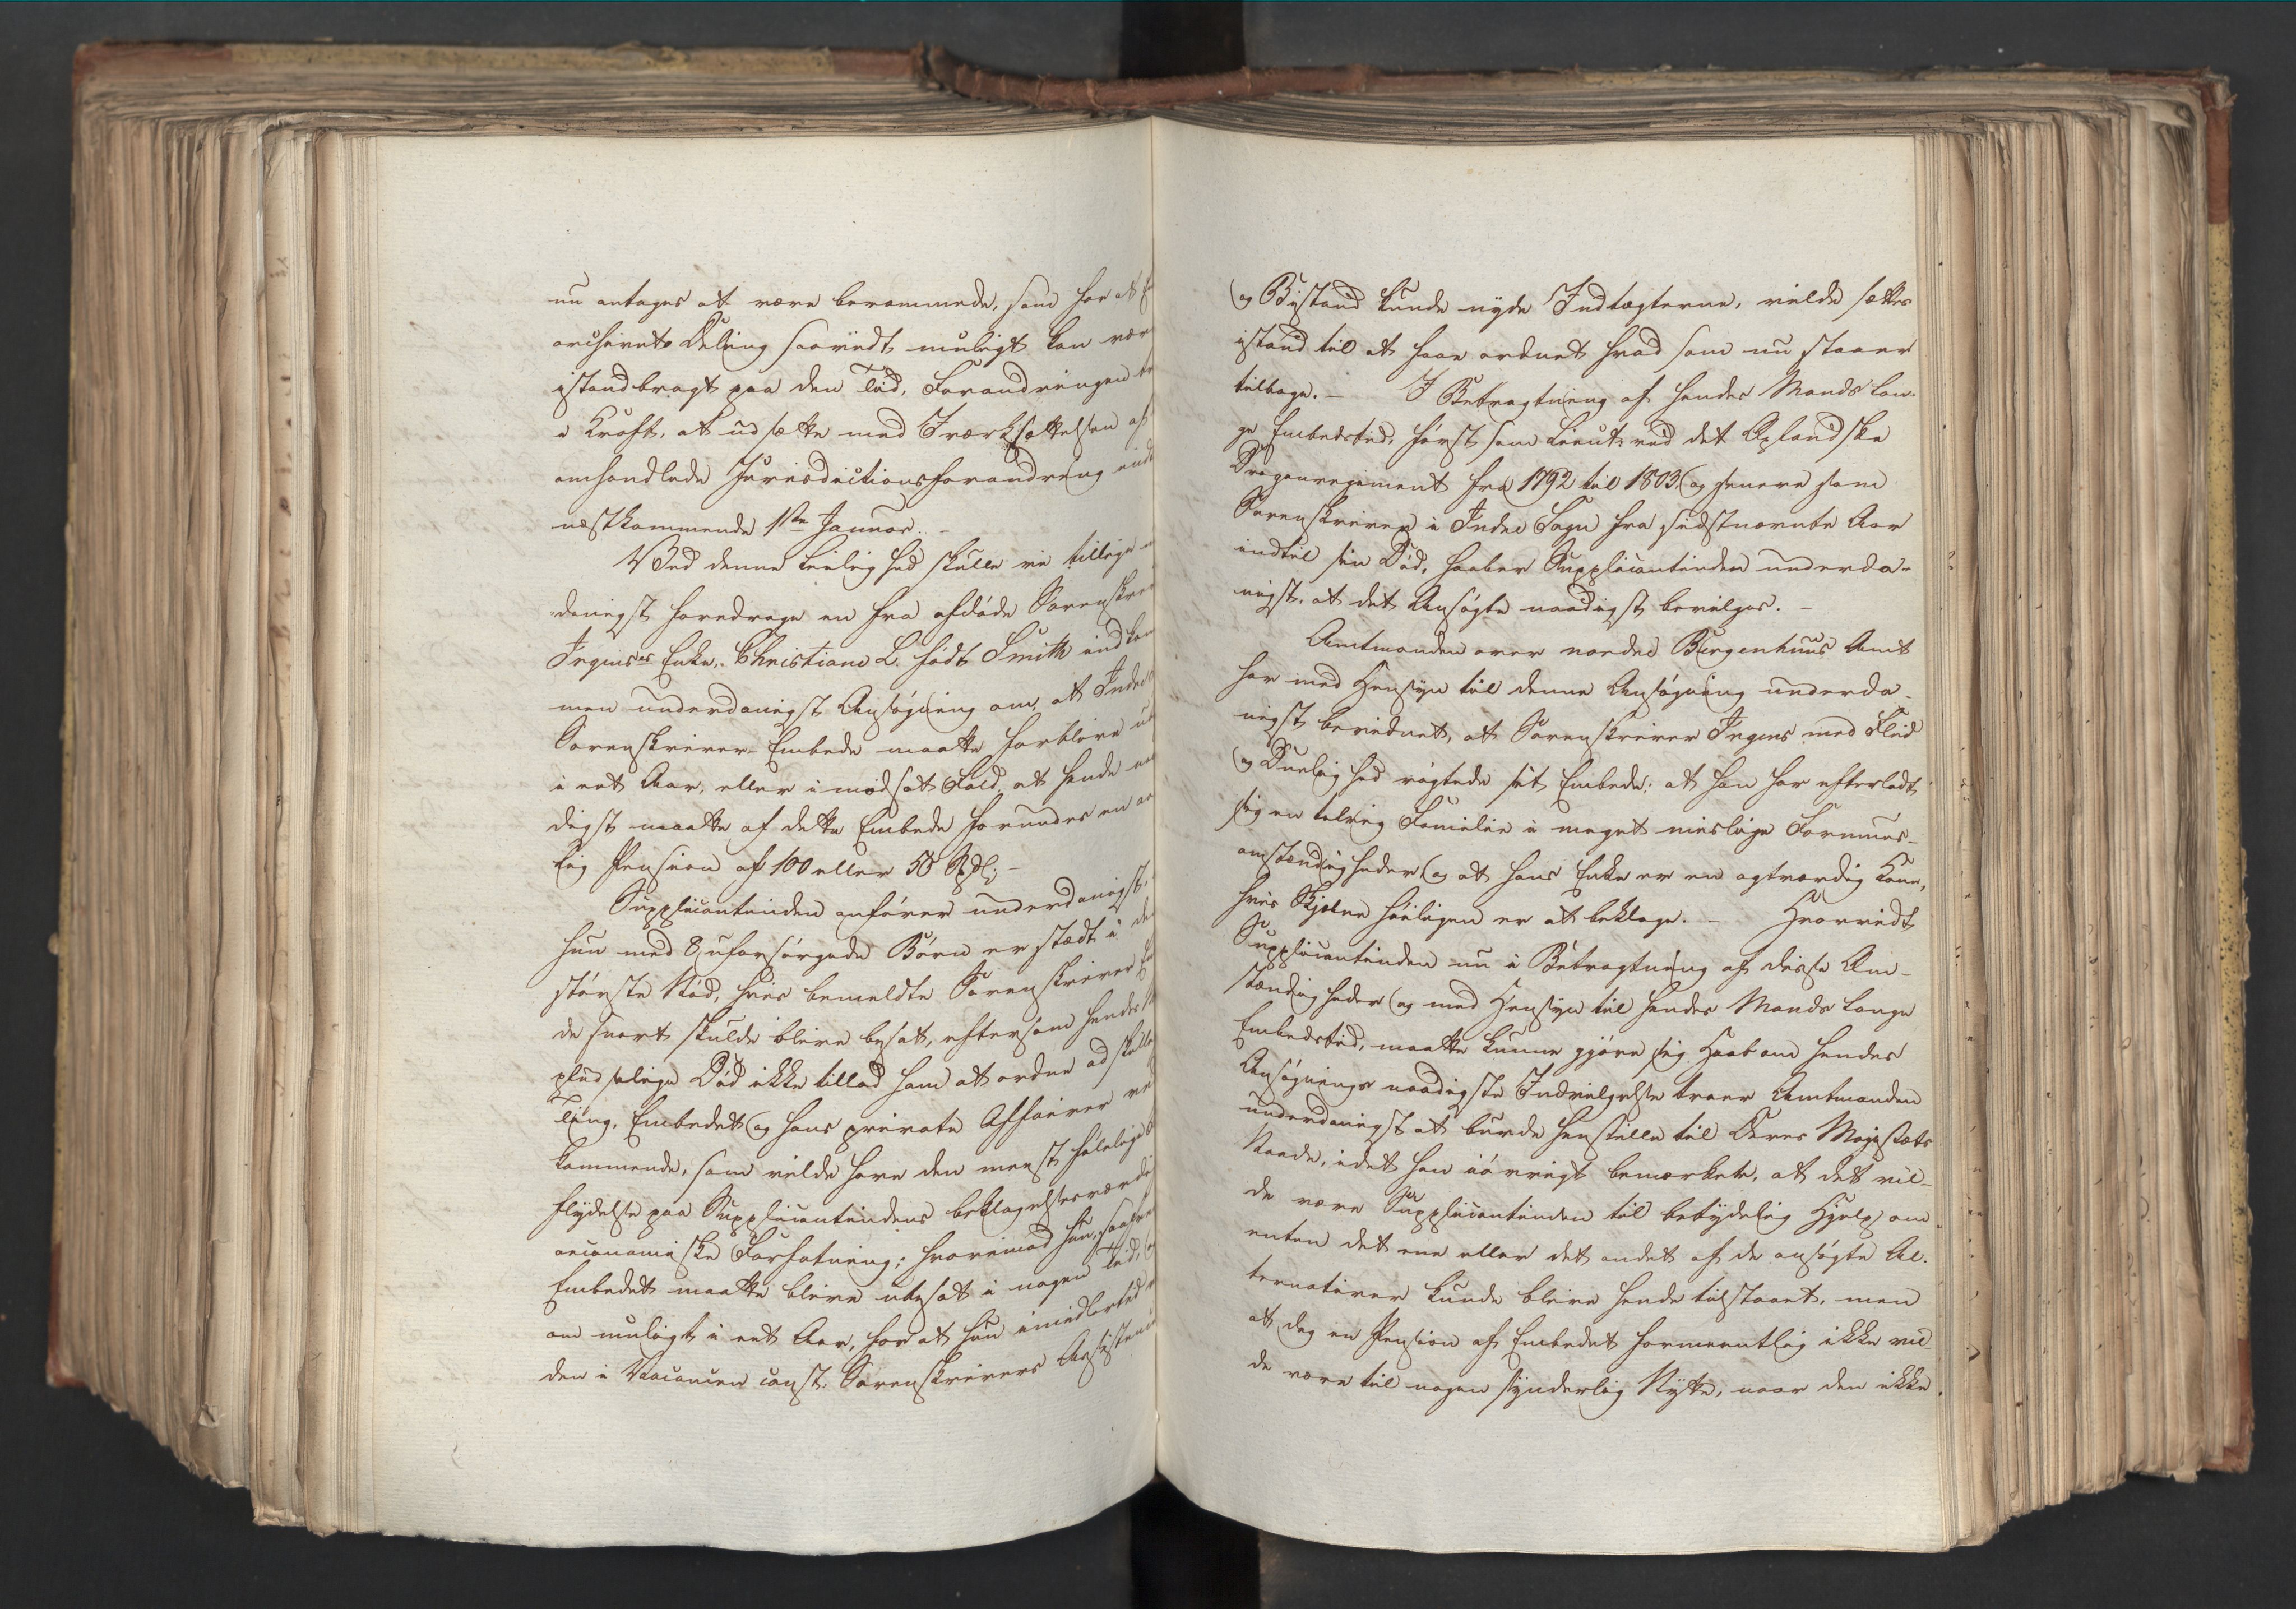 nu antages at være berammede, som for at
archivets Deling saavidt muligt kan vær
istandbragt paa den Tid, Forandringen
i Kraft, at udsætte med Iværksættelsen af
omhandlede Jurisdictionsforandring
næstkommende 1ste Januar. –
Ved denne Leilighed skulle vi tillige
danigst foredrage en fra afdøde Sorenskri
Irgens's Enke, Christiane L. født Smith indkom
men underdanigst Ansøgning om, at Indre
Sorenskriver-Embede maatte forblive
i eet Aar, eller i modsat Fald, at hende
digst maatte af dette Embede forundes en
lig Pension af 100 eller 50 Spdl; –
Supplicantinden anfører underdanigst,
hun med 8 uforsørgede Børn er stædt i de
største Nød, hvis bemeldte Sorenskriver
de snart skulde blive besat, eftersom hendes
pludselige Død ikke tillod ham at ordne adskille
Ting, Embedet og hans private Affairer
kommende, som vilde have den meest følelige
flydelse paa Supplicantindens beklagelsesværdi
oeconomiske Forfatning; hvorimod hun, saafre
Embedet maatte blive ubesat i nogen Tid,
om muligt i eet Aar, for at hun imidlertid
den i Vacancen const. Sorenskrivers Assistenc
og Bistand kunde nyde Indtægterne, vilde sættes
istand til at faae ordnet hvad som nu staaer
tilbage. – I Betragtning af hendes Mands lan-
ge Embedstid, først som Lieut: ved det Oplandske
Dragonregiment fra 1792 til 1803, og senere som
Sorenskriver i Indre Sogn fra sidstnævnte Aar
indtil sin Død, haaber Supplicantinden underda-
nigst, at det Ansøgte naadigst bevilges. –
Amtmanden over nordre Bergenhuus Amt
har med Hensyn til denne Ansøgning underda-
nigst bevidnet, at Sorenskriver Irgens med Flid
og Duelighed røgtede sit Embede; at han har efterladt
sig en talrig Familie i meget mislige Formues-
omstændigheder og at hans Enke er en agtværdig Kone,
hvis Skjebne høiligen er at beklage. – Hvorvidt
Supplicantinden nu i Betragtning af disse Om-
stændigheder og med Hensyn til hendes Mands lange
Embedstid, maatte kunne gjøre sig Haab om hendes
Ansøgnings naadigste Indvilgelse troer Amtmanden
underdanigst at burde henstille til Deres Majestæts
Naade, idet han iøvrigt bemærkede, at det vil-
de være Supplicantinden til betydelig Hjelp, om
enten det ene eller det andet af de ansøgte Al-
ternativer kunde blive hende tilstaaet, men
at dog en Pension af Embedet formeentlig ikke vil
de være til nogen synderlig Nytte, naar den ikke